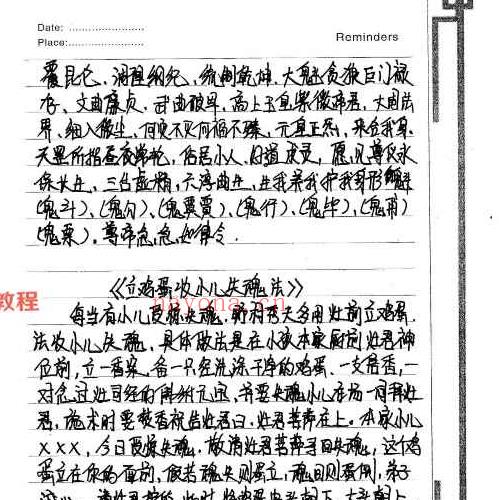 Date: ........................
Place:........................
Reminders
覆昆仑、调理纲纪、统制乾坤、大魁贪狼巨门禄
存、文曲廉贞、武曲破军、高上玉皇紫微帝君、大周法
界、细入微尘、何灾不灭何福不臻、元皇正炁、来合我身
天罡所指昼夜常轮、俗居小人、好道求灵、愿见尊仪永
保长生、三台虚精、六淳曲生、生我养我护我身形
尊帝急急如律令.
《立鸡蛋收小儿失魂法》
nayona.cn
教程
每当有小儿受惊失魂、多用灶前立鸡蛋
法收小儿失魂、具体做法是在小孩本家厨房灶君神
位前,立一香案,备一只经洗涤干净的鸡蛋、一支香,一
君、施术时要敬香祝告灶君曰、灶君菩萨在上、本家小儿
XXX,今日受惊失魂、敬请灶君菩萨寻回失魂,这个鸡
蛋立在你的面前,假若魂失则蛋立,魂回则蛋倒,弟子